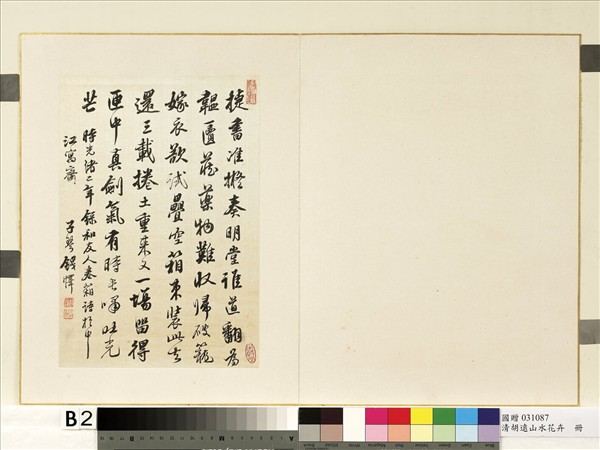 捷書准擬奏明堂誰道翻為
韞匱藏藥物難收歸破籠
嫁衣欲試疊空箱束裝此去
還三載捲土重來又一場留得
匣中真劍氣有時長嘯吐光
芒 時光緒二年錄和友人卷箱語於申
江寓齋 子琴錢懌
B2
國贈 031087
清胡遠山水花卉 冊